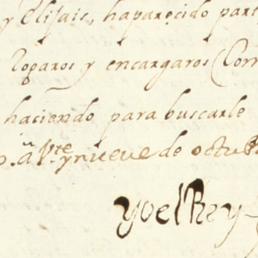 y Elijais, haparecido part
rogaros y encargaros (Com
haciendo para buscarle
a Vte ynueve de octub
yoel Rey